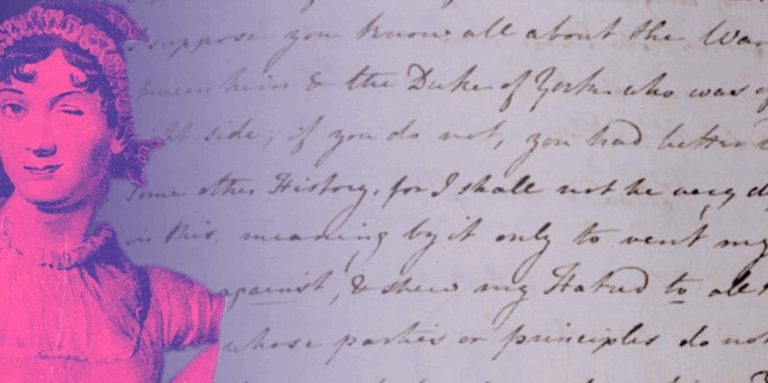 suppose you know all about the War
tween him & the Duke of York who was of
ight side; if you do not, you had better
some other History, for I shall not be very d
in this, meaning by it only to vent my
against, & shew my Hatred to all
whose parties or principles do not